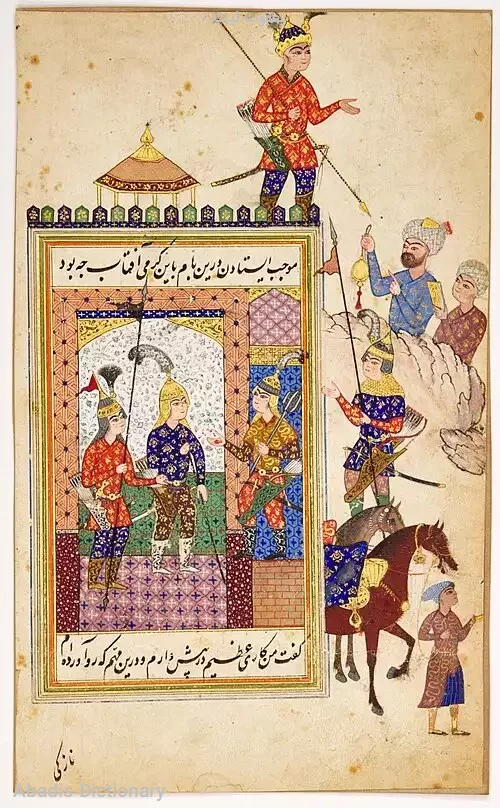 موجب ایستادن درین بام باین گرمی آفتاب چه بود
گفت من کاری عظیم در پیش دارم و درین مهم که رو آورده‌ام
نازکی
Abadis Dictionary